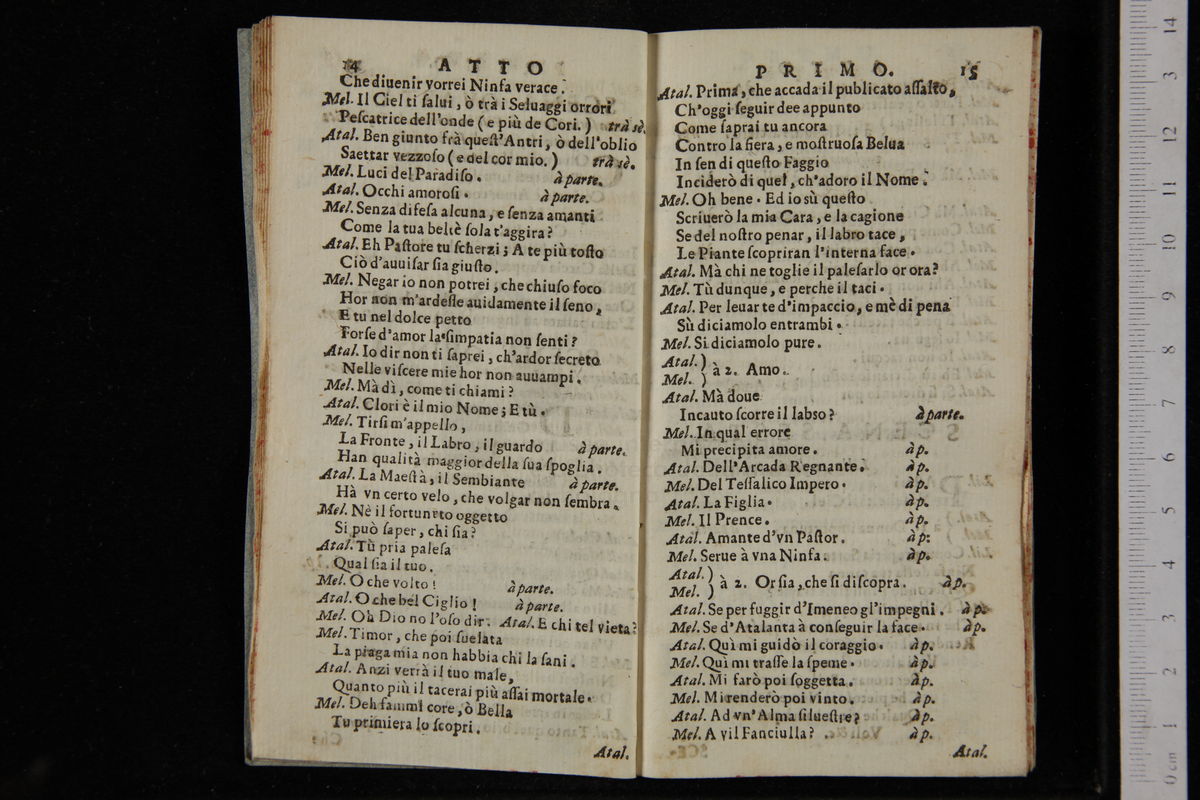 14 ATTO
Che diuenir vorrei Ninfa verace.
Mel. Il Ciel ti ſalui, ò trà i Seluaggi orrori
Peſcatrice dell'onde (e più de Cori.) trà sè.
Atal. Ben giunto frà queſt'Antri, ò dell'oblio
Saettar vezzoſo (e del cor mio.) trà sè.
Mel. Luci del Paradiſo. à parte.
Atal. Occhi amoroſi. à parte.
Mel. Senza difeſa alcuna, e ſenza amanti
Come la tua beltè ſola t'aggira?
Atal. Eh Paſtore tu ſcherzi; A te più toſto
Ciò d'auuiſar ſia giuſto.
Mel. Negar io non potrei, che chiuſo foco
Hor non m'ardeſſe auidamente il ſeno,
E tu nel dolce petto
Forſe d'amor la ſimpatia non ſenti?
Atal. Io dir non ti ſaprei, ch'ardor ſecreto
Nelle viſcere mie hor non auuampi.
Mel. Mà dì, come ti chiami?
Atal. Clori è il mio Nome; E tù.
Mel. Tirſi m'appello,
La Fronte, il Labro, il guardo à parte.
Han qualità maggior della ſua ſpoglia.
Atal. La Maeſtà, il Sembiante à parte.
Hà vn certo velo, che volgar non ſembra.
Mel. Nè il fortuneto oggetto
Si può ſaper, chi ſia?
Atal. Tù pria paleſa
Qual ſia il tuo.
Mel. O che volto! à parte.
Atal. O che bel Ciglio! à parte.
Mel. Oh Dio no l'oſo dir. Atal. E chi tel vieta?
Mel. Timor, che poi ſuelata
La piaga mia non habbia chi la ſani.
Atal. Anzi verrà il tuo male,
Quanto più il tacerai più aſſai mortale.
Mel. Deh fammi core, ò Bella
Tu primiera lo ſcopri.
Atal.
PRIMO. 15
Atal. Prima, che accada il publicato aſſalto,
Ch'oggi ſeguir dee appunto
Come ſaprai tu ancora
Contro la fiera, e moſtruoſa Belua
In ſen di queſto Faggio
Inciderò di quel, ch'adoro il Nome.
Mel. Oh bene. Ed io sù queſto
Scriuerò la mia Cara, e la cagione
Se del noſtro penar, il labro tace,
Le Piante ſcopriran l'interna face.
Atal. Mà chi ne toglie il paleſarlo or ora?
Mel. Tù dunque, e perche il taci.
Atal. Per leuar te d'impaccio, e mè di pena
Sù diciamolo entrambi.
Mel. Si diciamolo pure.
Atal.)
Mel. ) à 2. Amo.
Atal. Mà doue
Incauto ſcorre il labso? à parte.
Mel. In qual errore
Mi precipita amore. à p.
Atal. Dell'Arcada Regnante. à p.
Mel. Del Teſſalico Impero. à p.
Atal. La Figlia. à p.
Mel. Il Prence. à p.
Atal. Amante d'vn Paſtor. à p:
Mel. Serue à vna Ninfa. à p.
Atal.)
Mel. ) à 2. Or ſia, che ſi diſcopra. à p.
Atal. Se per fuggir d'Imeneo gl'impegni. à p.
Mel. Se d'Atalanta à conſeguir la face. à p.
Atal. Quì mi guidò il coraggio. à p.
Mel. Quì mi traſſe la ſpeme. à p.
Atal. Mi farò poi ſoggetta. à p.
Mel. Mi renderò poi vinto. à p.
Atal. Ad vn'Alma ſilueſtre? à p.
Mel. A vil Fanciulla? à p.
Atal.